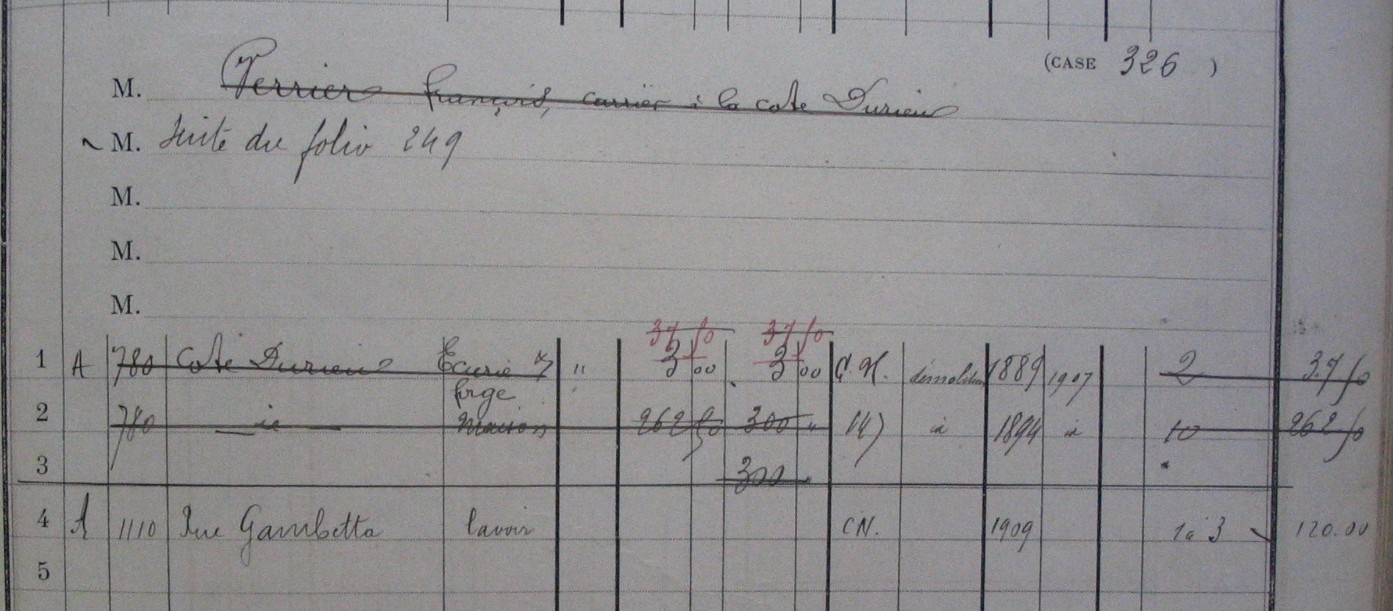 (CASE 326 )
M. Perrier françois, carrier à la cote Durieux
M. Suite du folio 249
M.
M.
M.
37 50 37 50
1 A 780 Cote Durieux Ecurie & " 3 00 3 00 C.N. démolition 1889 1907 2 37 50
forge
2 780 — id — Maison 262 50 300 " id 1894 id 10 262 50
3 300
4 A 1110 Rue Gambetta lavoir C.N. 1909 1 à 3 120.00
5